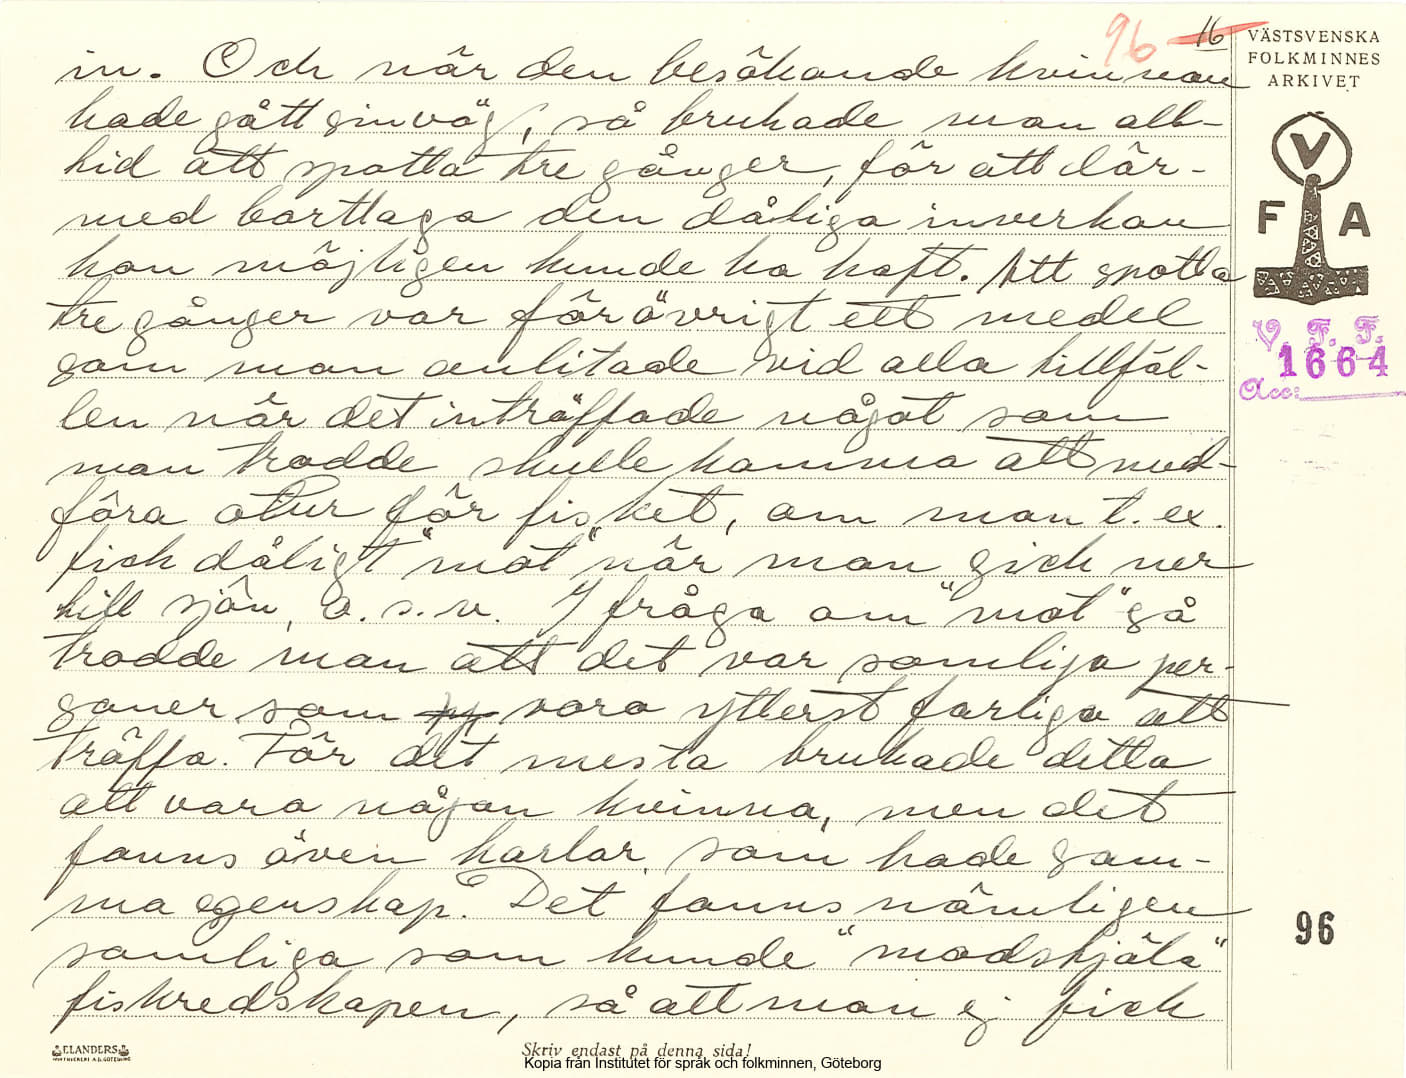 96 16
VÄSTSVENSKA
FOLKMINNES
ARKIVET
V
F A
V. F. F.
1664
Acc:
in. Och när den besökande kvinnan
hade gått sin väg, så brukade man all-
tid att spotta tre gånger, för att där-
med borttaga den dåliga inverkan
hon möjligen kunde ha haft. Att spotta
tre gånger var förövrigt ett medel
som man anlitade vid alla tillfäl-
len när det inträffade något som
man trodde skulle komma att med-
föra otur för fisket, om man t. ex.
fick dåligt "mot" när man gick ner
till sjön, o. s. v. I fråga om "mot" så
trodde man att det var somliga per-
soner som vara ytterst farliga att
träffa. För det mesta brukade detta
att vara någon kvinna, men det
fanns även karlar, som hade sam-
ma egenskap. Det fanns nämligen
somliga som kunde "modstjäla"
fiskredskapen, så att man ej fick
96
ELANDERS
Skriv endast på denna sida!
Kopia från Institutet för språk och folkminnen, Göteborg